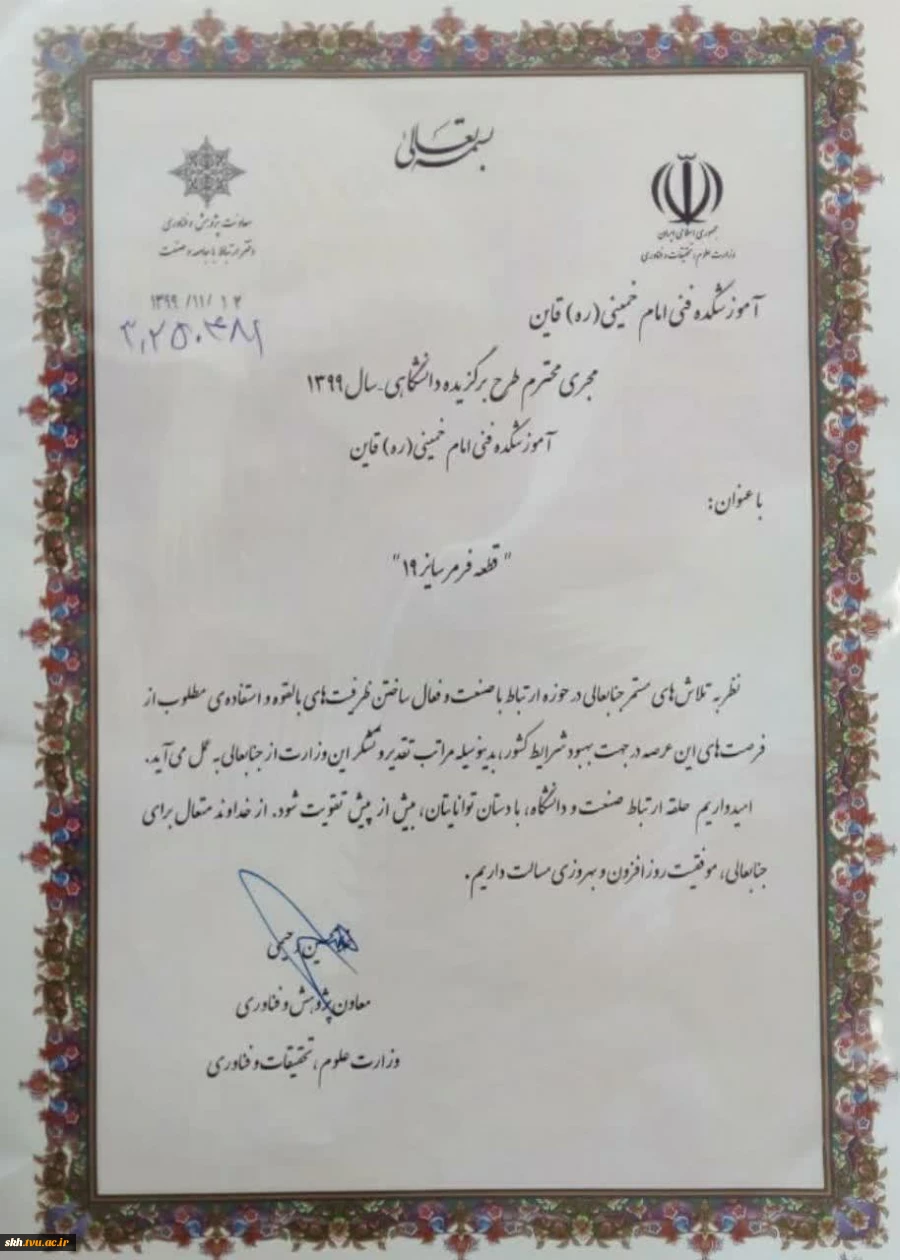 بسمه تعالی
جمهوری اسلامی ایران
وزارت علوم، تحقیقات و فناوری
معاونت پژوهش و فناوری
دفتر ارتباط با جامعه و صنعت
۱۳۹۹/۱۱/۱۲
آموزشکده فنی امام خمینی(ره) قاین
مجری محترم طرح برگزیده دانشگاهی-سال ۱۳۹۹
آموزشکده فنی امام خمینی(ره) قاین
با عنوان:
"قطعه فرمر سایز ۱۹"
نظر به تلاش‌های مستمر جنابعالی در حوزه ارتباط با صنعت و فعال ساختن ظرفیت‌های بالقوه و استفاده‌ی مطلوب از
فرصت‌های این عرصه در جهت بهبود شرایط کشور، بدینوسیله مراتب تقدیر و تشکر این وزارت از جنابعالی به عمل می‌آید.
امیدواریم حلقه ارتباط صنعت و دانشگاه، با دستان توانایتان، بیش از پیش تقویت شود. از خداوند متعال برای
جنابعالی، موفقیت روزافزون و بهروزی مسالت داریم.
غلامحسین رحیمی
معاون پژوهش و فناوری
وزارت علوم، تحقیقات و فناوری
skh.tvu.ac.ir